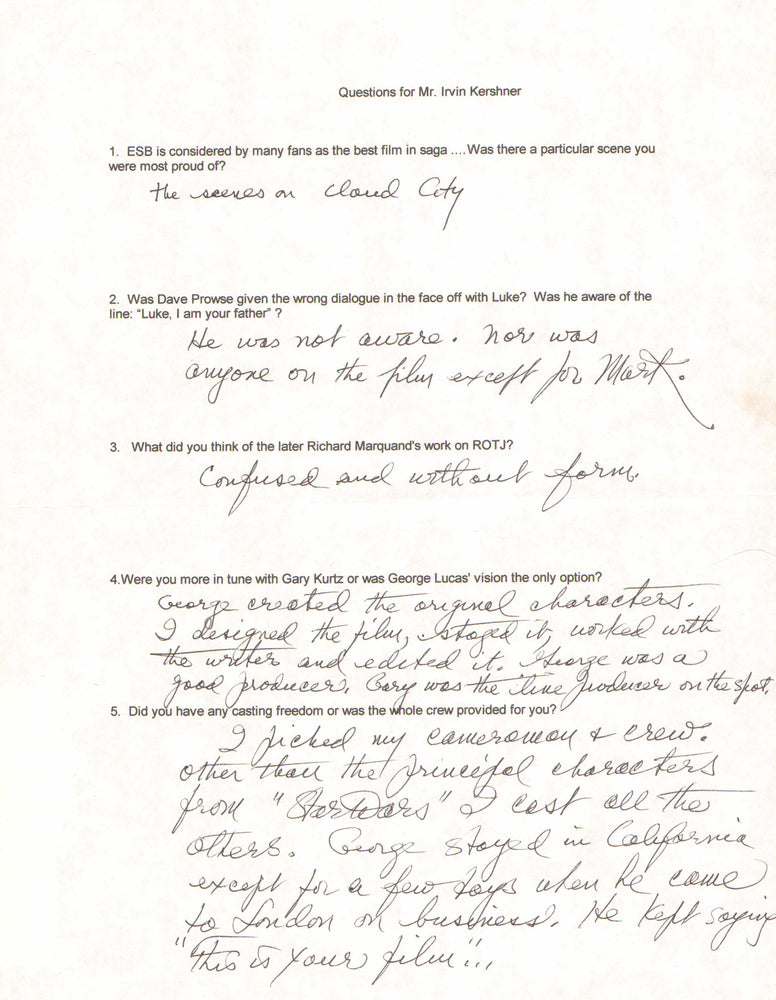 Questions for Mr. Irvin Kershner
1. ESB is considered by many fans as the best film in saga ....Was there a particular scene you
were most proud of?
the scenes on cloud City
2. Was Dave Prowse given the wrong dialogue in the face off with Luke? Was he aware of the
line: "Luke, I am your father" ?
He was not aware. Nor was
anyone on the film except for Mark.
3. What did you think of the later Richard Marquand's work on ROTJ?
Confused and without form.
4.Were you more in tune with Gary Kurtz or was George Lucas' vision the only option?
George created the original characters.
I designed the film, staged it, worked with
the writer and edited it. George was a
good producer. Gary was the line producer on the spot.
5. Did you have any casting freedom or was the whole crew provided for you?
I picked my cameraman & crew.
Other than the principal characters
from "Star Wars" I cast all the
others. George stayed in California
except for a few days when he came
to London on business. He kept saying
"this is your film"...